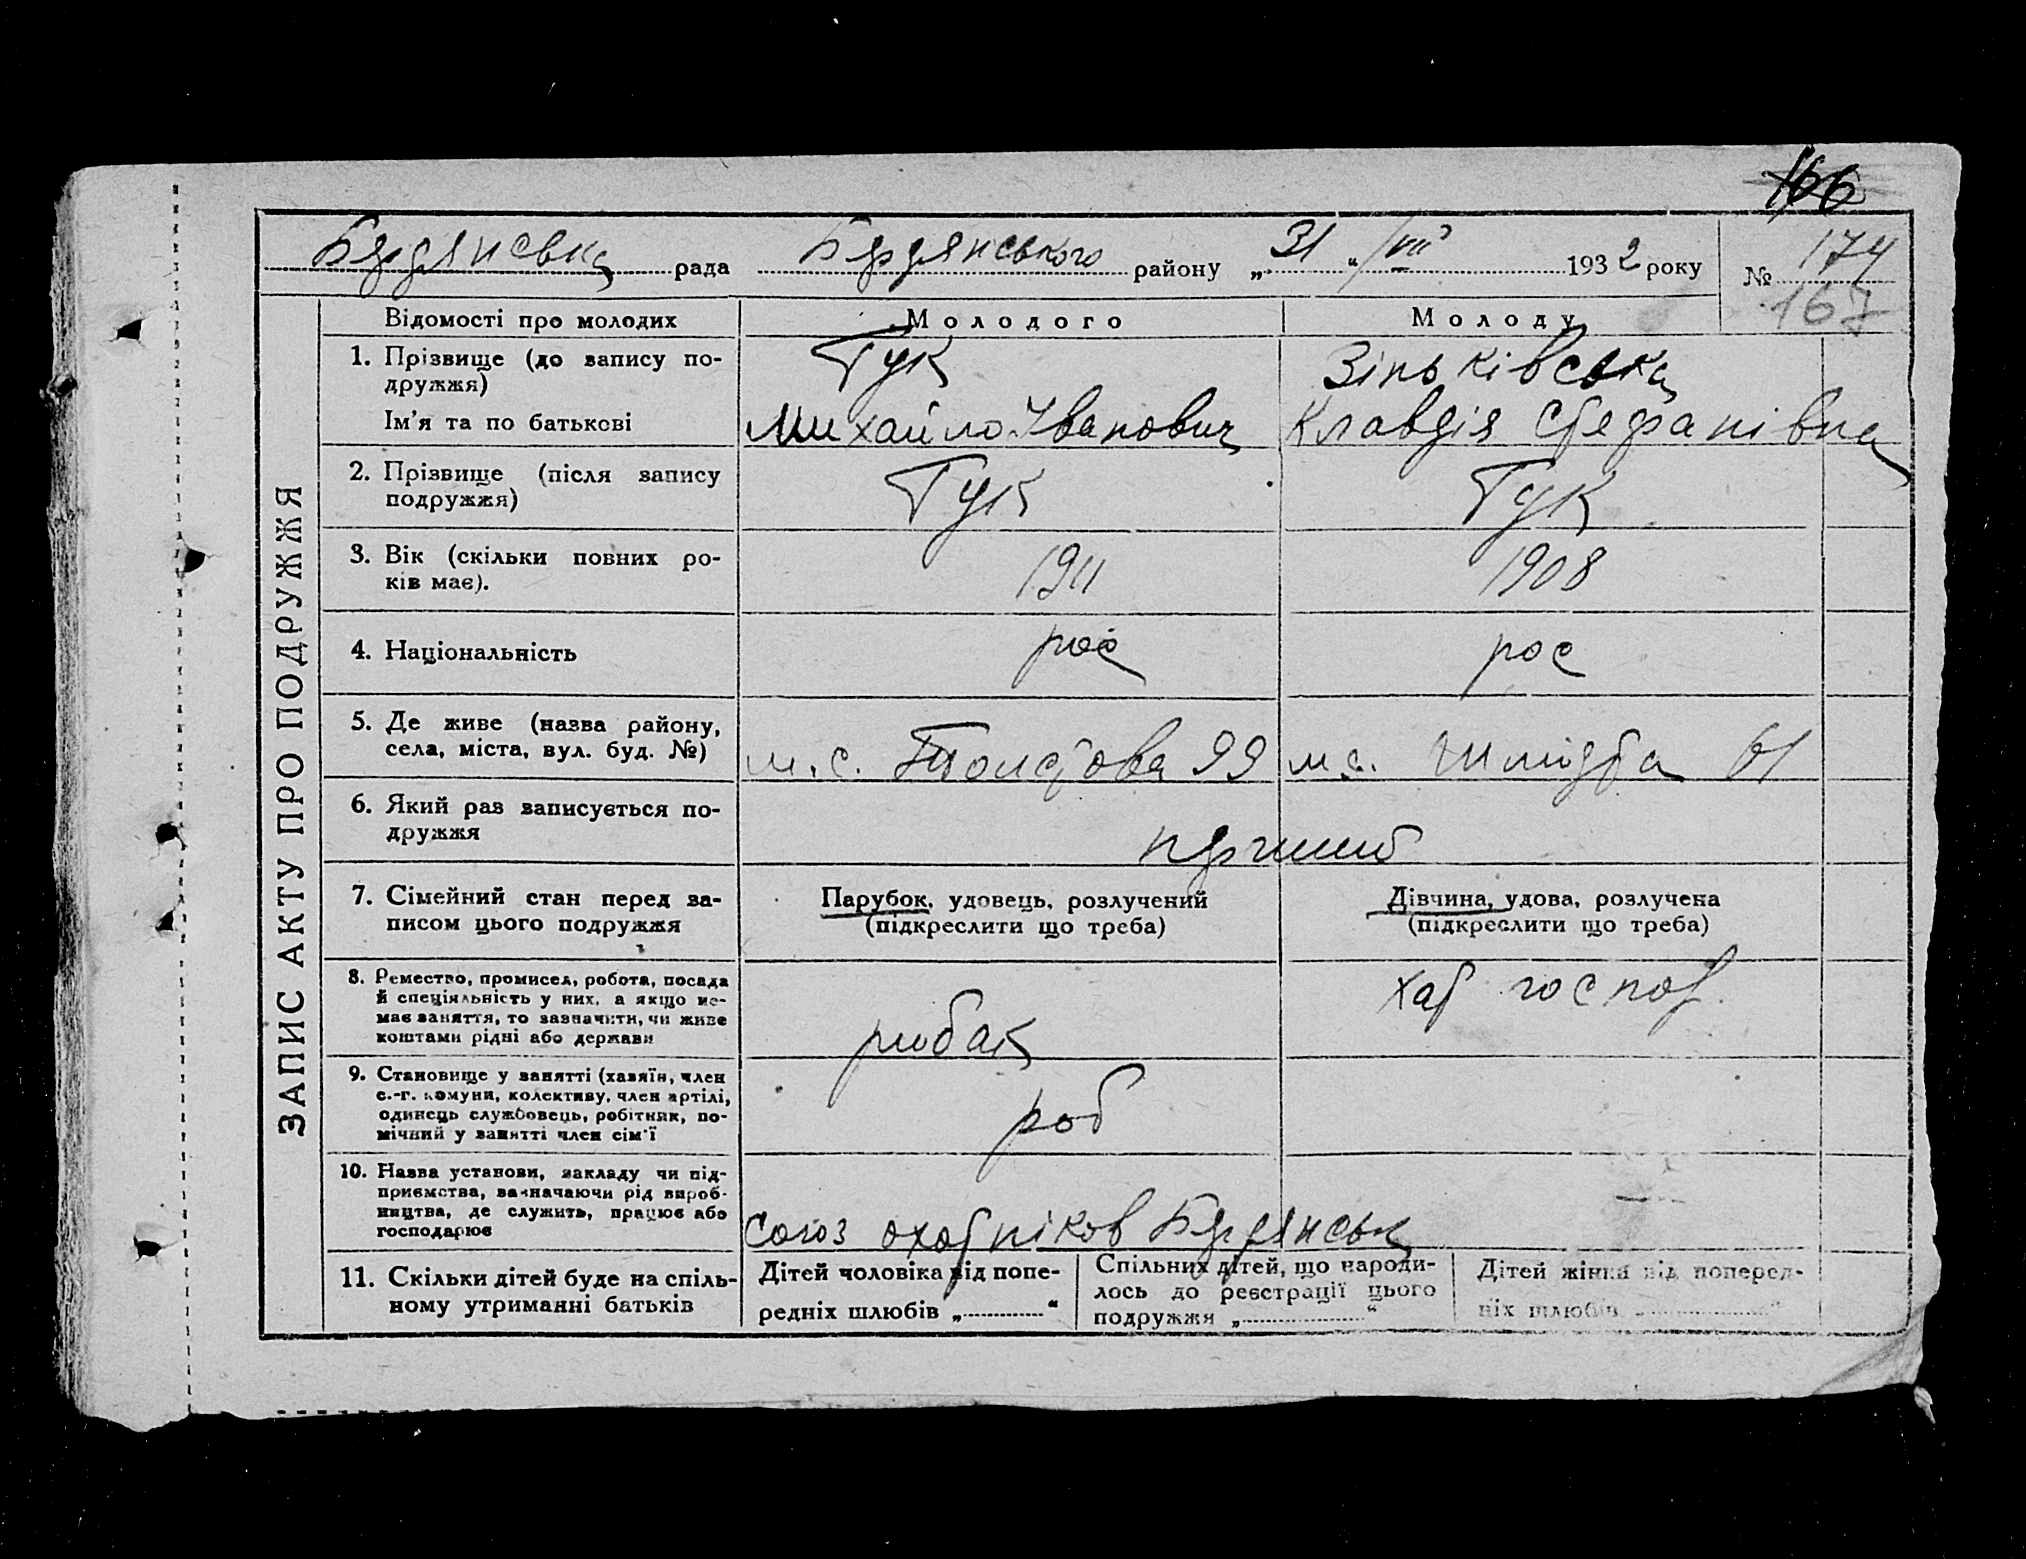 166
Бердянська рада Бердянського району „31“ VIII 1932 року № 174
167
ЗАПИС АКТУ ПРО ПОДРУЖЖЯ
Відомості про молодих Молодого Молоду
1. Прізвище (до запису по- Гук Зіньківська
дружжя)
Ім'я та по батькові Михайло Іванович Клавдія Стефанівна
2. Прізвище (після запису Гук Гук
подружжя)
3. Вік (скільки повних ро- 1911 1908
ків має).
4. Національність рос рос
5. Де живе (назва району,
села, міста, вул. буд. №) м.с. Толстова 99 м с. Шмідта 61
6. Який раз записується по-
дружжя перший
7. Сімейний стан перед за- Парубок, удовець, розлучений Дівчина, удова, розлучена
писом цього подружжя (підкреслити що треба) (підкреслити що треба)
8. Ремество, промисел, робота, посада хат госпор
й спеціяльність у них, а якщо не-
має заняття, то зазначити, чи живе
коштами рідні або держави рибак
9. Становище у занятті (хазяїн, член
с.-г. комуни, колективу, член артілі,
одинець службовець, робітник, по- роб
мічний у занятті член сім'ї
10. Назва установи, закладу чи під-
приємства, вазначаючи рід вироб-
ництва, де служить, працює або
господарює союз охотніков Бердянськ
11. Скільки дітей буде на спіль- Дітей чоловіка від попе- Спільних дітей, що народи- Дітей жінки від поперед-
ному утриманні батьків редніх шлюбів „ “ лось до реєстрації цього ніх шлюбів „ “
подружжя „ “